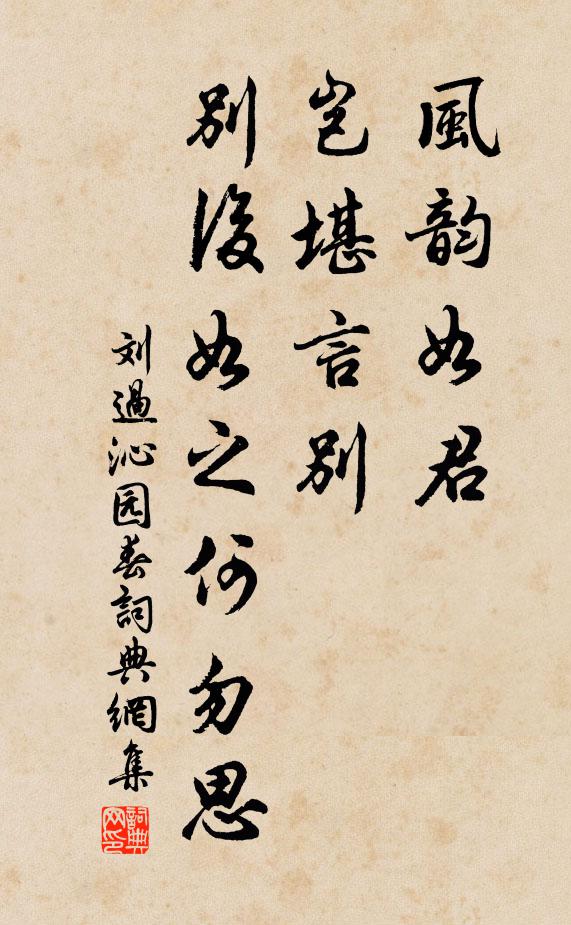 風韵如君
豈堪言別
別後如之何勿思
刘過沁园春詞典網集
詞典网印